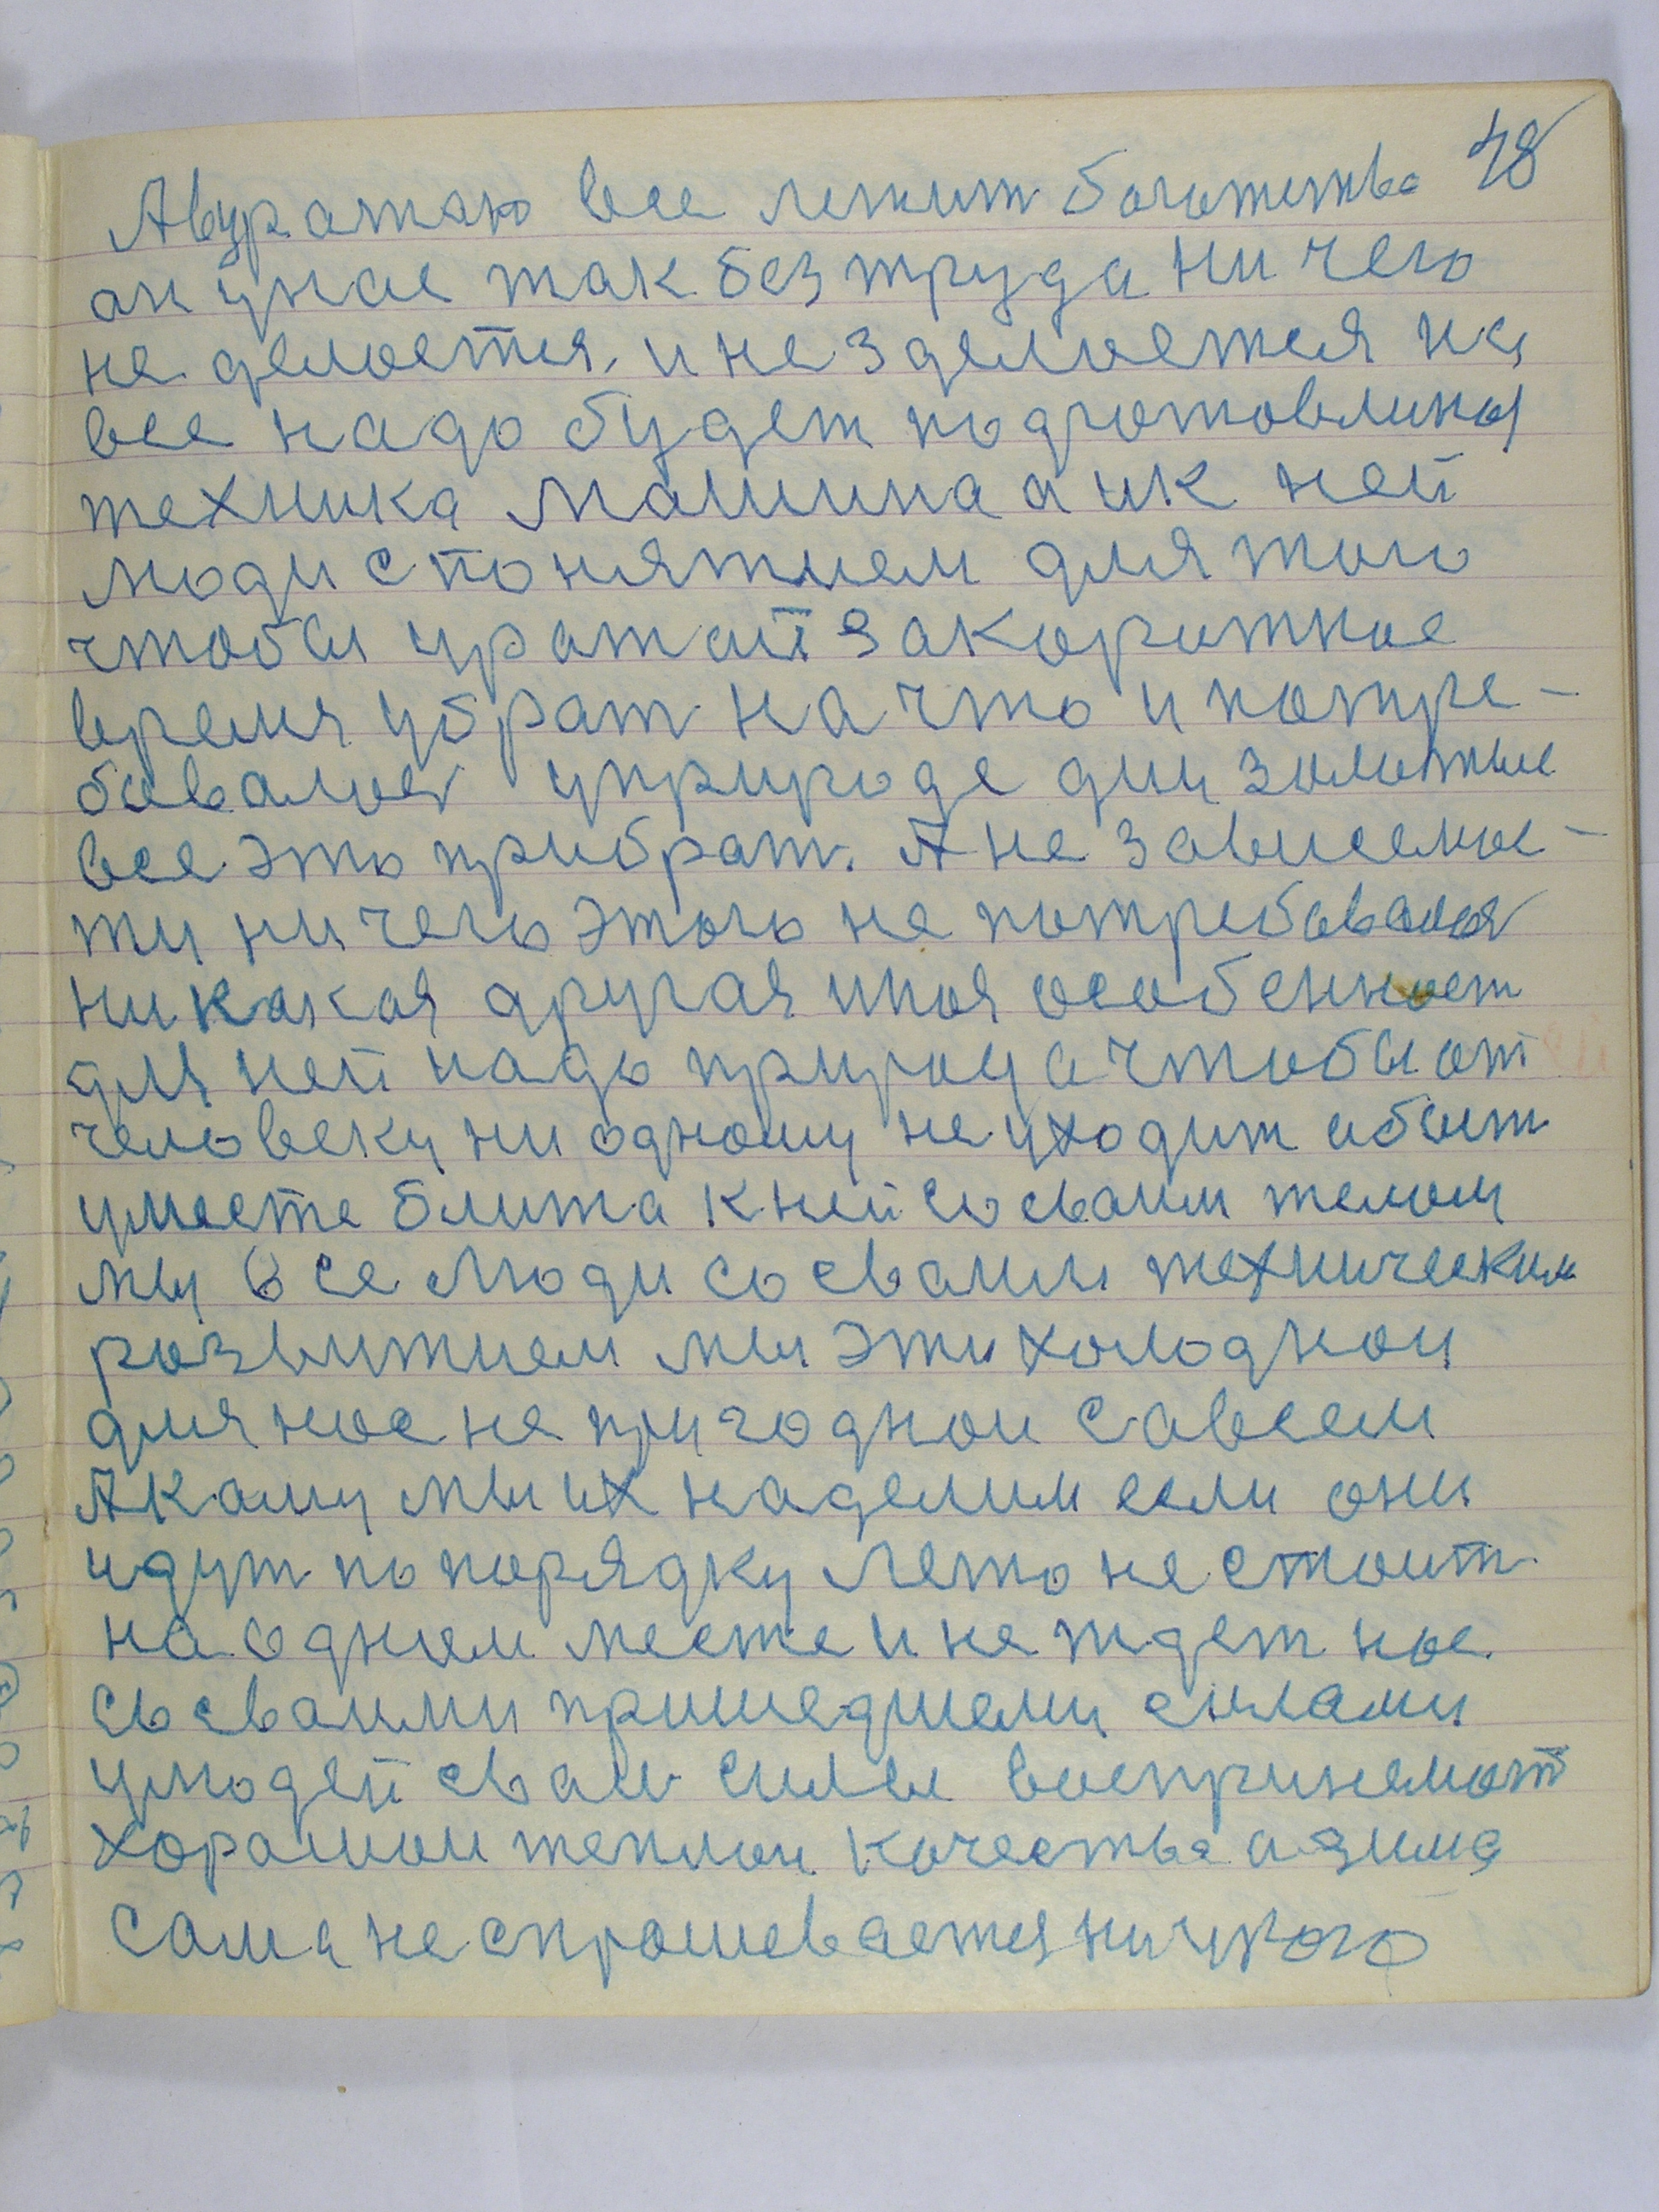 48
А вуражаю все лежит богатства
он у нас так без труда ни чего
не делается. и не зделается на
все надо будет подготовлины
техника машина а ик ней
люди с понятием для того
чтобы уражай за короткое
время убрат на что и потре-
бавалос у природе дни золотые
все это прибрат. А не зависемос-
ти ни чего этого не потребавалос
ни какая другая иная особенност
для ней надо природа чтобы от
человеку ни одному не уходит а быт
уместе ближа к ней со сваим телом
мы все люди со сваим техническим
развитием мы эти холоднои
для нас не пригоднои савсем
А каму мы их наделим если они
идут по порядку лето не стоит
на одном месте и не ждет нас
со сваими пришедшеми силами
у людей сваи силы воспринемают
хорошои теплои качества а зима
сама не спрошевается ни укого